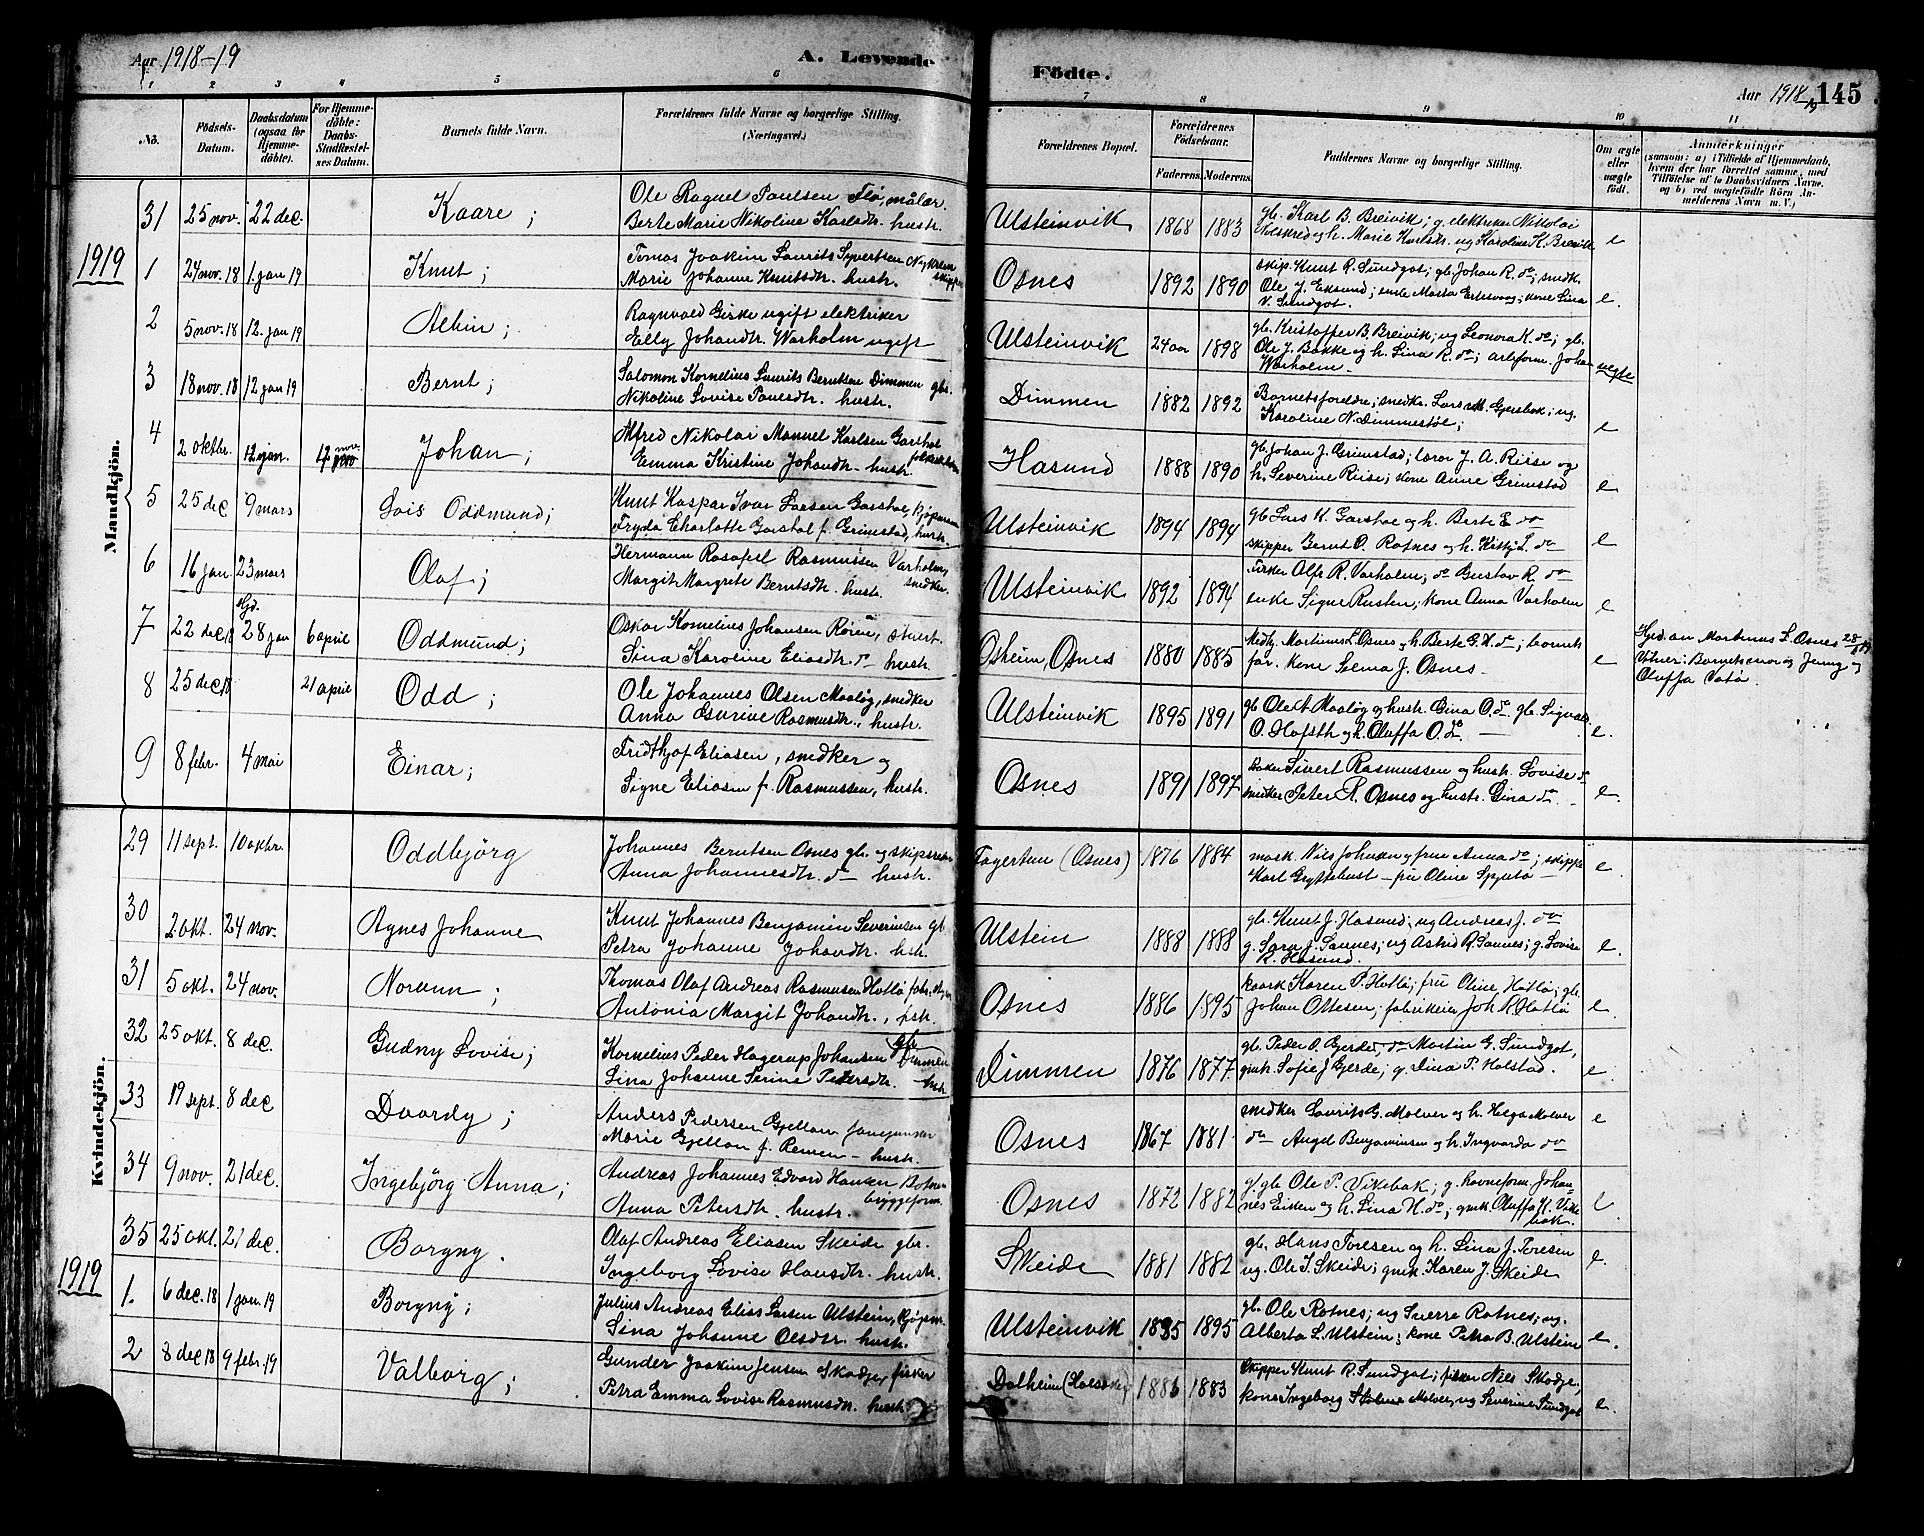 Aar 1918-19
A. Levende
Födte.
Aar 1918/19 145
1 2 3 4 5 6 7 8 9 10 11
No.
Födsels-Datum.
Daabsdatum (ogsaa for Hjemmedöbte).
For Hjemmedöbte: Daabs-Stadfæstelses Datum.
Barnets fulde Navn.
Forældrenes fulde Navne og borgerlige Stilling.
(Næringsvei.)
Forældrenes Bopæl.
Forældrenes Födselsaar.
Faderens. Moderens.
Faddernes Navne og borgerlige Stilling.
Om ægte eller uægte födt.
Anmærkninger
(saasom: a) i Tilfælde af Hjemmedaab, hvem der har forrettet samme, med Tilföielse af to Daabsvidners Navne, og b) ved uegtefödte Börn Anmelderens Navn m. V.)
Mandkjön.
31 25 nov. 22 dec. Kaare; Ole Raguel Paulsen Flø, målar
Berte Marie Nikoline Karlsdtr. hustr.
Ulsteinvik 1868 1883 gb. Karl B. Breivik; g. elektriker Nikolai
og h. Marie Karlsdr. ug Karoline K. Breivik e
1919
1 24 nov. 18 1. jan 19 Knut; Tomas Joakim Laurits Syvertsen skipper
Marie Johanne Knutsdtr. hustr.
Osnes 1892 1890 skip. Knut R. Sundgot; gb. Johan R. do; smedk.
Ole J. Eksund; enke Marta; kone Lina
V. Sundgot. e.
2 5 nov. 18 12. jan 19 Ragnvald Girke ugift elektriker
Elly Johandtr. Warholm ugift
Ulsteinvik 24 aar 1898 gb. Kristoffer B. Breivik; ug Leonora K. do; gb.
Ole J. Bakke og h. Lina R. do; arbform. Johan
Warholm. uegte
3 18 nov. 18 12 jan 19 Bernt; Salomon Kornelius Laurits Berntsen Dimmen gbr.
Nikoline Lovise Paulsdtr. hustr.
Dimmen 1882 1892 Barnets foreldre; smedk. Lars M. Gjersbak; ug.
Karoline N. Dimmestøl; e
4 2 oktbr. 12 jan. 17 nov Johan; Alfred Nikolai Manuel Karlsen Garshol
Emma Kristine Johandtr. hustr.
Hasund 1888 1890 gb. Johan J. Grimstad; lærer J. A. Riise og
h. Severine Riise; kone Anne Grimstad e
5 25 dec 9 mars Lois Oddmund; Knut Kaspar Ivar Larsen Garshol, kjøpmann
Fryda Charlotte Garshol f. Grimstad, hustr.
Ulsteinvik 1894 1894 gb Lars K. Garshol og h. Berte E do
skipper Bernt O. Rotnes og h. Kitty L. do e
6 16 jan. 23 mars Olaf; Hermann Rasmussen Varholm, snedker.
Margit Margrete Berntsdtr. hustr.
Ulsteinvik 1892 1894 fisker Alfr R. Varholm; do Gustav R. do
enke Signe Rusten; kone Anna Varholm e
7 22 dec 18 Hjd. 28 jan 6 april Oddmund; Oskar Kornelius Johansen
Lina Karoline Eliasdtr. do hustr.
Osheim, Osnes 1880 1885 Martinus L. Osnes og h. Berte G. H. do; barnets
far. kone Lelma J. Osnes. e
Hjd. av Martinus L. Osnes 28/1 19
Vitner: Barnets mor og Jenny og
Oluffa Vatø.
8 25 dec 18 21 april Odd; Ole Johannes Olsen Maaløg, snedker
Anna Gurine Rasmusdtr., hustr.
Ulsteinvik 1895 1891 gb Ole A Maaløg og hustr. Gina O. do gb. Sigvald
O. Hofseth og h. Oluffa O. L. e.
9 8 febr. 4 mai Einar; Fridthjof Eliasen, snedker og
Signe Eliasen f. Rasmussen, hustr.
Osnes 1891 1897 Sivert Rasmussen og hustr. Lovise do
snedker Peter R. Osnes og hustr. Gina do. e.
Kvindekjön.
29 11 sept. 10 oktbr. Oddbjörg Johannes Berntsen Osnes gb. og skipsreder
Anna Johannesdtr. do hustr.
Fagertun (Osnes) 1876 1884 mask. Nils Johnsen og frue Anna do; skipper
Karl Gryttehust - frk Oline e.
30 2 okt. 24 nov. Agnes Johanne Knut Johannes Benjamin Severinsen gb
Petra Johanne Johandtr. hstr.
Ulstein 1888 1888 gb. Knut J. Hasund; ug Andreas J. do
g. Sara J. Saunes; ug Astrid R. Saunes; g. Lovise
R. Hasund. e.
31 5 okt. 24 nov. Norunn; Thomas Olaf Andreas Rasmussen Hatlø
Antonia Margit Johandtr., hstr.
Osnes 1886 1895 Karen P. Hatlø; frü Oline Hatlø; gb.
Johan Ottesen; fabrikeier Joh. R. Hatlø e.
32 25 okt. 8 dec. Gudny Lovise; Kornelius Peder Hagerup Johansen gb Dimmen
Lina Johanne Serine Petersdtr. hustr.
Dimmen 1876 1877 gb. Peder O. Gjerde, do Martin G. Sundgot,
gmk. Sofie J Gjerde; g. Lina P. Holstad. e.
33 19 sept. 8 dec Doordy; Anders Pedersen
Marie f. Remen hustr.
Osnes 1867 1881 snedker Laurits G. Molver og h. Helga Molver
do Angel Benjaminsen og h. Ingvarda do e
34 9 nov. 21 dec. Ingebjörg Anna; Andreas Johannes Edvard Hansen bryggeform.
Anna Petersdtr. hustr.
Osnes 1872 1882 gb Ole P. Vikebak; g. havneform. Johannes Eiken og h. Lina H. do; gmk. Oluffa K. Vikebak. e
35 25 okt. 21 dec. Borgny. Olaf Andreas Eliasen Skeide gbr.
Ingeborg Lovise Hansdtr. hustr.
Skeide 1881 1882 gb. Hans Toresen og h. Lina J. Toresen
ug. Ole I. Skeide; gmk. Karen J. Skeide e.
1919
1. 6 dec. 18 1 jan. 19 Borgny; Julius Andreas Elias Larsen Ulstein, kjøpm.
Lina Johanne Olsdtr. hustr.
Ulsteinvik 1895 gb. Ole Rotnes; ug Sverre Rotnes; ug.
Alberta L. Ulstein; kone Petra B. Ulstein e.
2 8 dec 18 9 febr. 19 Valborg; Gunder Joakim Jensen Skodje, fisker
Petra Emma Lovise Rasmusdtr. hustr.
Dalheim 1883 skipper Knut R. Sundgot; fisker Nils Skodje,
kone Ingeborg Molver, ug Severine Sundgot e.